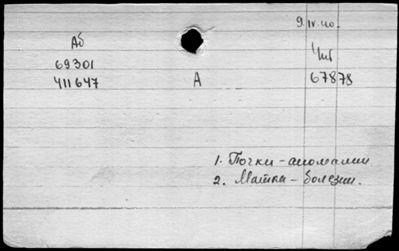 9.IV.40.
Аб
Чит
69301
411647 А 67878
1. Почки - аномалии
2. Матка - болезни.